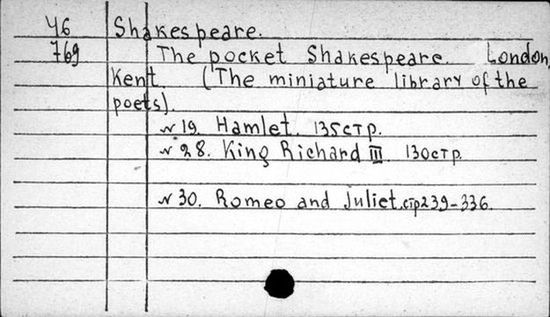 Ч6 Shakespeare.
769 The pocket Shakespeare. London,
Kent. (The miniature library of the
poets).
N 19. Hamlet. 135стр.
N 28. King Richard III 130стр.
N 30. Romeo and Juliet. стр239-336.